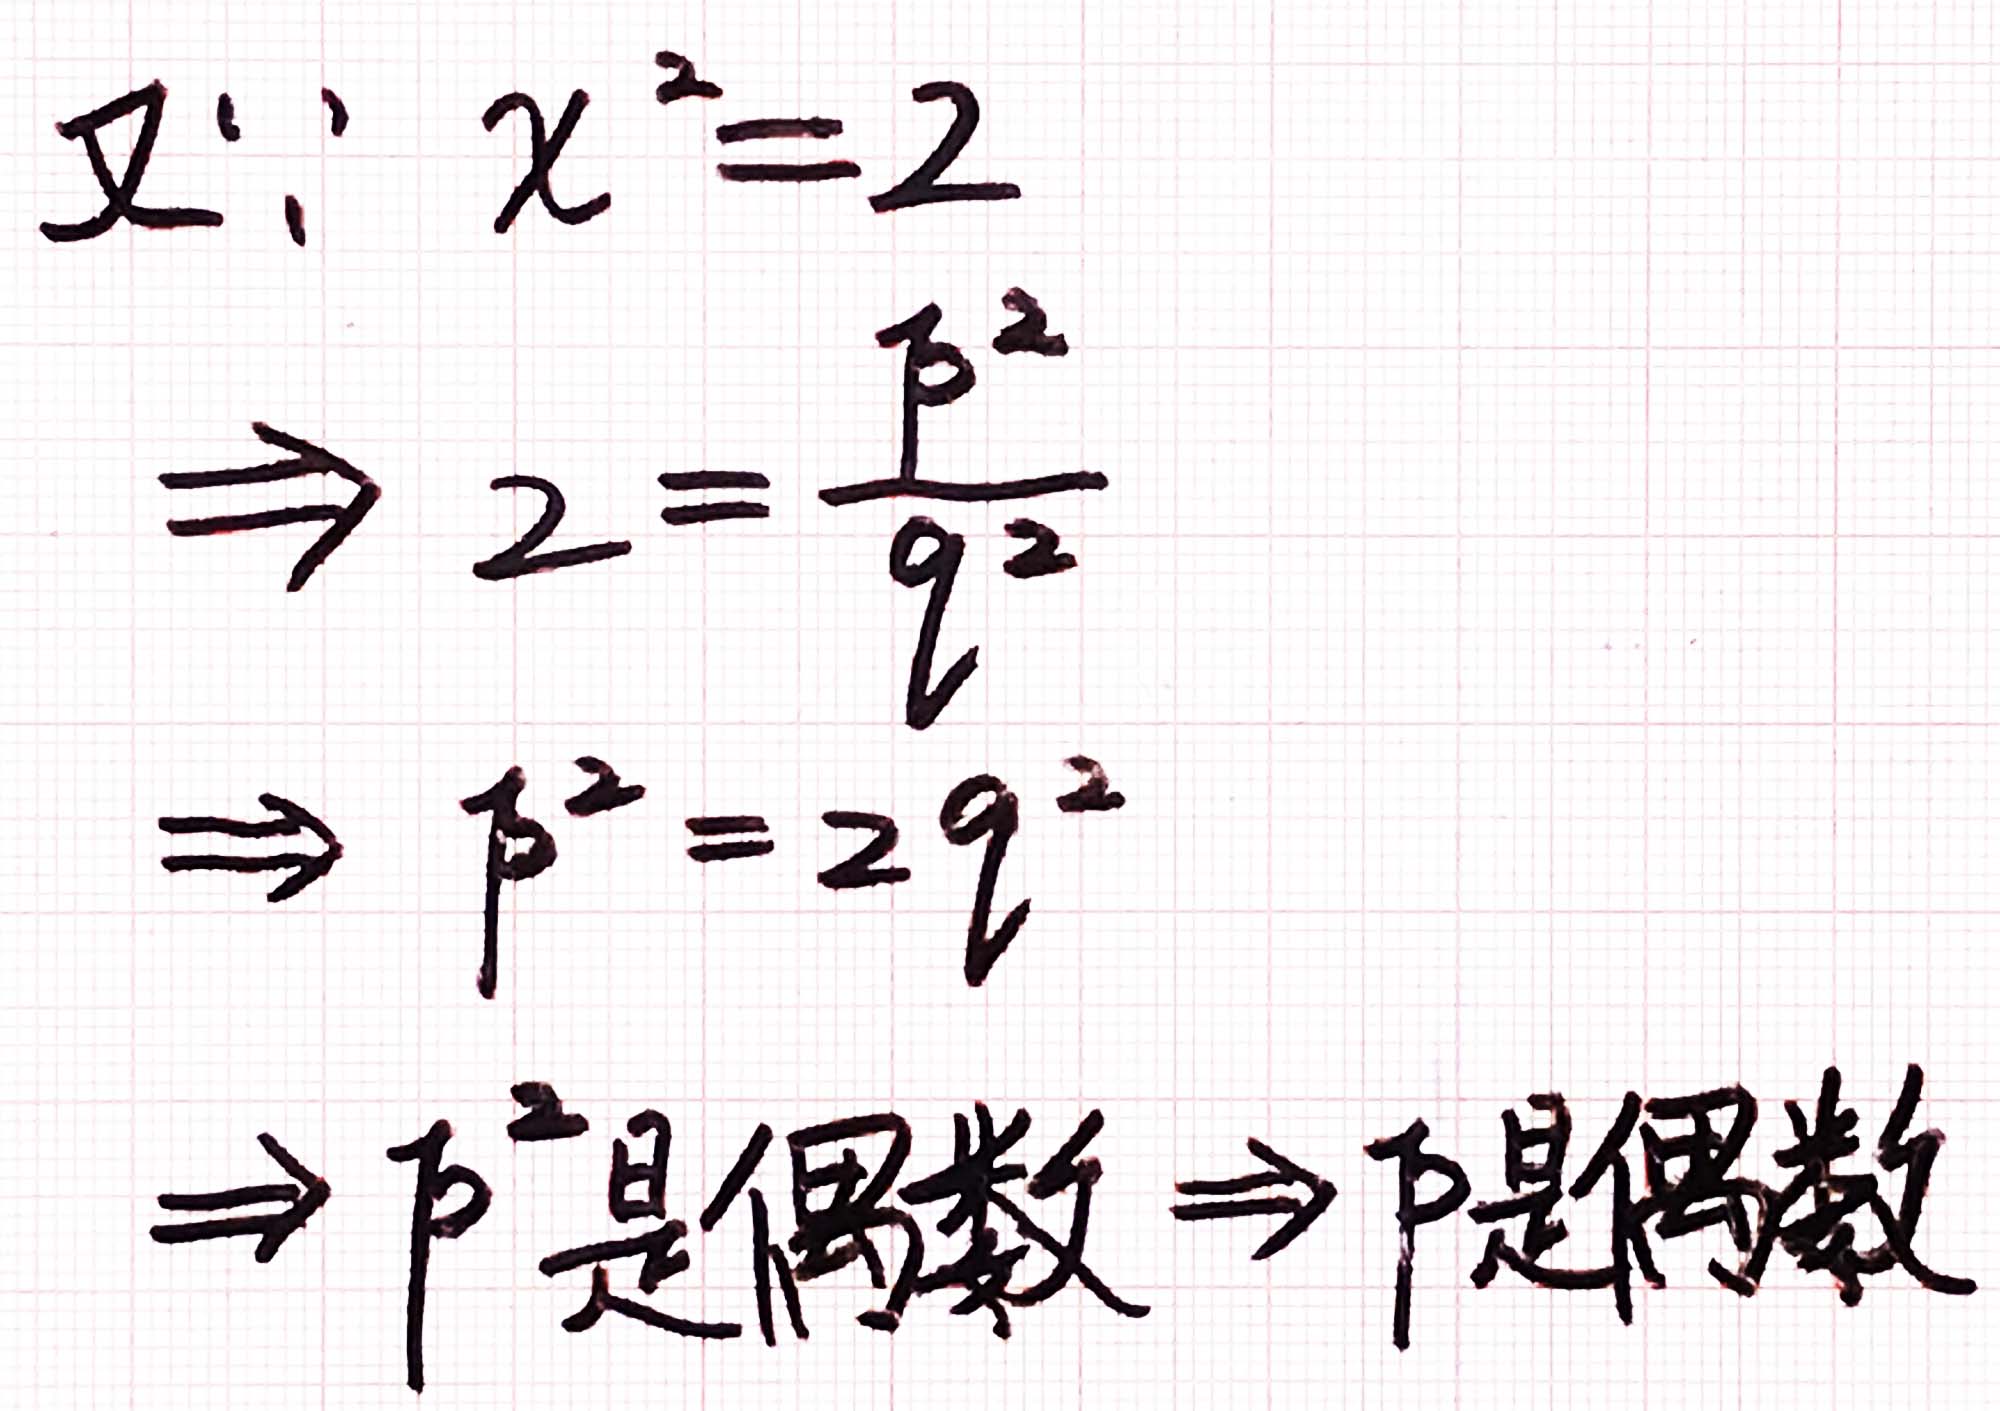 又∵ x²=2
⇒ 2 = p²/q²
⇒ p² = 2q²
⇒ p²是偶数 ⇒ p是偶数